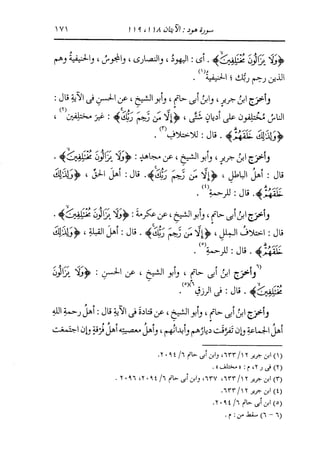 سورة هود : الآيتان ١١٨ ، ١١٩
١٧١
﴿وَلَا يَزَالُونَ مُخْتَلِفِينَ﴾ . أى : اليهودُ ، والنصارى ، والمجوسُ ، والحنيفيةُ وهم
الذين رحِم ربُّك ؛ الحنيفيةُ(١) .
وأخرَج ابنُ جريرٍ ، وابنُ أبى حاتمٍ ، وأبو الشيخِ ، عن الحسنِ فى الآيةِ قال :
الناسُ مُختلِفون على أديانٍ شتَّى ، ﴿إِلَّا مَن رَّحِمَ رَبُّكَ﴾ : غيرُ مختلفِين(٢) ،
﴿وَلِذَٰلِكَ خَلَقَهُمْ﴾ . قال : للاختلافِ(٣) .
وأخرَج ابنُ جريرٍ ، وأبو الشيخِ ، عن مجاهدٍ : ﴿وَلَا يَزَالُونَ مُخْتَلِفِينَ﴾ .
قال : أهلُ الباطلِ ، ﴿إِلَّا مَن رَّحِمَ رَبُّكَ﴾ . قال : أهلُ الحقِّ ، ﴿وَلِذَٰلِكَ
خَلَقَهُمْ﴾ . قال : للرحمةِ(٤) .
وأخرَج ابنُ أبى حاتمٍ ، وأبو الشيخِ ، عن عكرمةَ : ﴿وَلَا يَزَالُونَ مُخْتَلِفِينَ﴾ .
قال : اختلافُ المللِ ، ﴿إِلَّا مَن رَّحِمَ رَبُّكَ﴾ . قال : أهلُ القبلةِ ، ﴿وَلِذَٰلِكَ
خَلَقَهُمْ﴾ . قال : للرحمةِ(٥) .
(٦)وأخرَج ابنُ أبى حاتمٍ ، وأبو الشيخِ ، عن الحسنِ : ﴿وَلَا يَزَالُونَ
مُخْتَلِفِينَ﴾ . قال : فى الرزقِ(٥)(٦) .
وأخرَج ابنُ أبى حاتمٍ ، وأبو الشيخِ ، عن قتادةَ فى الآيةِ قال : أهلُ رحمةِ اللهِ
أهلُ الجماعةِ وإن تفرَّقت ديارُهم وأبدانُهم ، وأهلُ معصيتِه أهلُ فُرقةٍ وإن اجتمعت
(١) ابن جرير ١٢/ ٦٣٣، وابن أبى حاتم ٦/ ٢٠٩٤.
(٢) فى ر ٢، م : « مختلف » .
(٣) ابن جرير ١٢/ ٦٣٣، ٦٣٧، وابن أبى حاتم ٦/ ٢٠٩٤، ٢٠٩٦ .
(٤) ابن جرير ١٢/ ٦٣٣.
(٥) ابن أبى حاتم ٦/ ٢٠٩٤.
(٦ - ٦) سقط من : م .